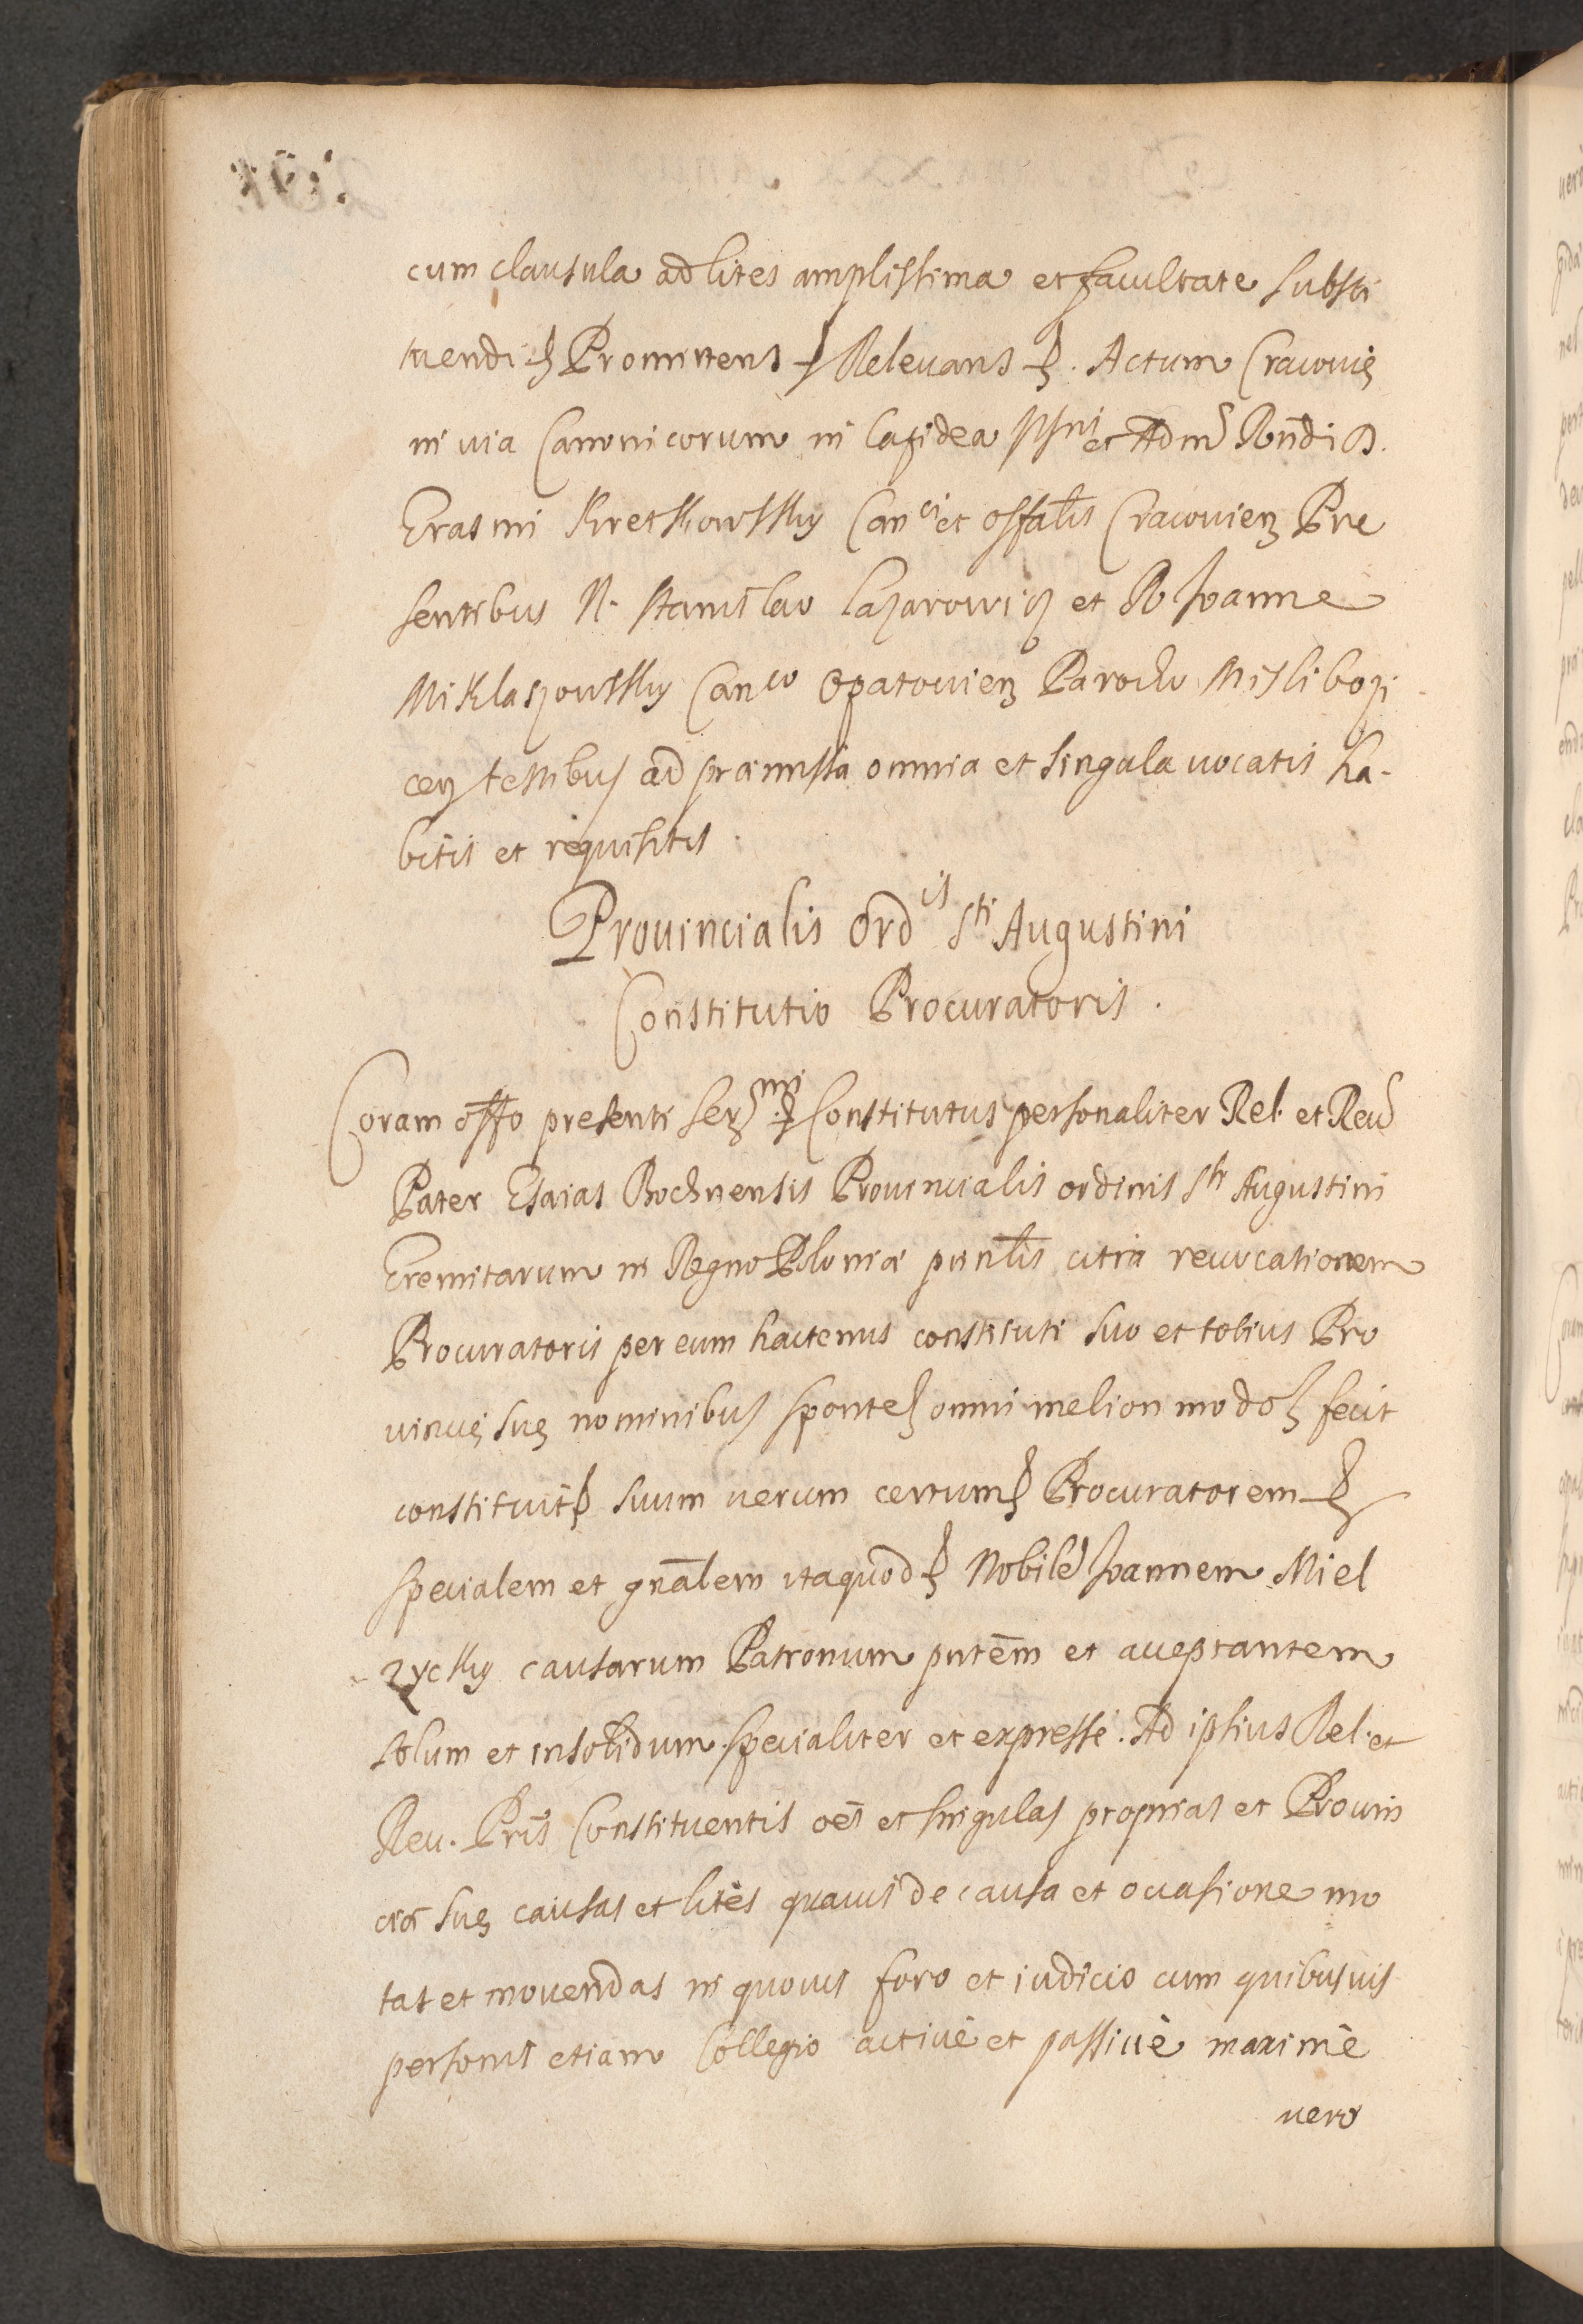 cum clausula ad lites amplissima et facultate substi
tuendi etc Promittens etc Relevans etc. Actum Cracovię
in via Canonicorum in lapidea et Adm Rndi D.
Erasmi Kretkowsky Canci et offalis Cracovien Pre
sentibus N. Stanislao Lazarowicz et R. Joanne
Miklaszowsky Canco Opatovien Parocho Mislibozi
cen testibus ad præmissa omnia et singula vocatis ha-
bitis et requisitis.
Provincialis Ordis Sti Augustini
Constitutio Procuratoris.
Coram offo presenti etc Constitutus personaliter Rel. et Reud
Pater Esaias Bochnensis Provincialis ordinis Sti Augustini
Eremitarum in Regno Poloniæ citra revocationem
Procuratoris per eum hactenus constituti suo et totius Pro
vincię suę nominibus sponte etc omni meliori modo etc fecit
constituit etc suum verum certum etc Procuratorem etc
specialem et gnalem itaquod etc Nobilem Joannem Miel
zycky causarum Patronum pntem et acceptantem
solum et insolidum specialiter et expresse. Ad ipsius Rel. et
Reu. Pris Constituentis oes et singulas proprias et Provin
ciæ suę causas et lites quavis de causa et occasione mo
tas et movendas in quovis foro et iudicio cum quibusvis
personis etiam Collegio active et passive maxime
vero